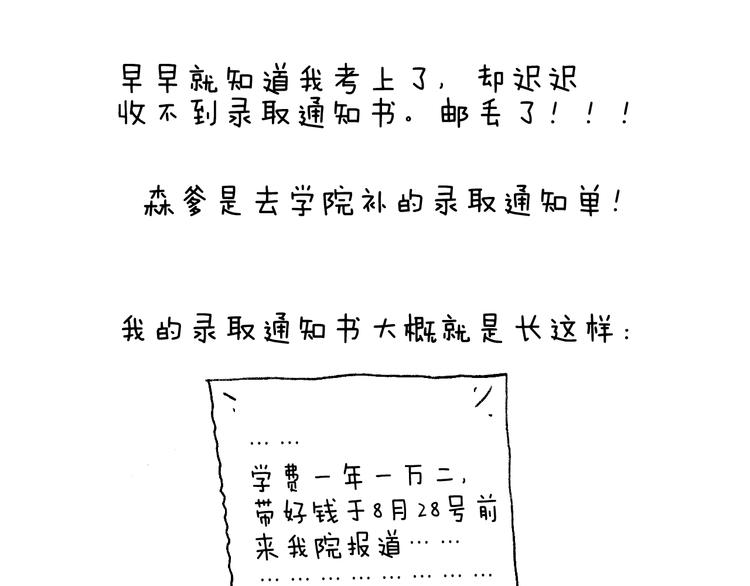 早早就知道我考上了，却迟迟
收不到录取通知书。邮丢了！！！
森爹是去学院补的录取通知单！
我的录取通知书大概就是长这样：
……
学费一年一万二，
带好钱于8月28号前
来我院报道……
………………………